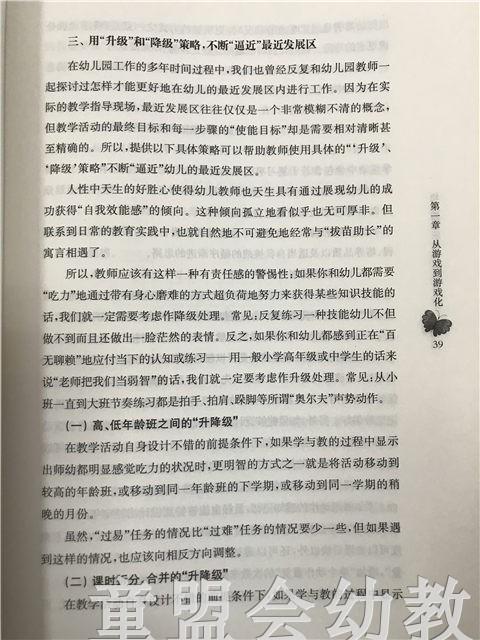 三、用“升级”和“降级”策略，不断“逼近”最近发展区
在幼儿园工作的多年时间过程中，我们也曾经反复和幼儿园教师一
起探讨过怎样才能更好地在幼儿的最近发展区内进行工作。因为在实
际的教学指导现场，最近发展区往往仅仅是一个非常模糊不清的概念，
但教学活动的最终目标和每一步骤的“使能目标”却是需要相对清晰甚
至精确的。所以，提供以下具体策略可以帮助教师使用具体的“‘升级’、
‘降级’策略”不断“逼近”幼儿的最近发展区。
人性中天生的好胜心使得幼儿教师也天生具有通过展现幼儿的成
功获得“自我效能感”的倾向。这种倾向孤立地看似乎也无可厚非。但
联系到日常的教育实践中，也就自然地不可避免地经常与“拔苗助长”的
寓言相遇了。
所以，教师应该有这样一种有责任感的警惕性；如果你和幼儿都需要
“吃力”地通过带有身心磨难的方式超负荷地努力来获得某些知识技能的
话，我们就一定需要考虑作降级处理。常见：反复练习一种技能幼儿不但
做不到而且还做出一脸茫然的表情。反之，如果你和幼儿都感到正在“百
无聊赖”地应付当下的认知或练习——用一般小学高年级或中学生的话来
说“老师把我们当弱智”的话，我们就一定要考虑作升级处理。常见：从小
班一直到大班节奏练习都是拍手、拍肩、跺脚等所谓“奥尔夫”声势动作。
（一）高、低年龄班之间的“升降级”
在教学活动自身设计不错的前提条件下，如果学与教的过程中显示
出师幼都明显感觉吃力的状况时，更明智的方式之一就是将活动移动到
较高的年龄班，或移动到同一年龄班的下学期，或移动到同一学期的稍
晚的月份。
虽然，“过易”任务的情况比“过难”任务的情况要少一些，但如果遇
到这样的情况，也应该向相反方向调整。
（二）课时 分、合并的“升降级”
在教学 设计 的前提条件下 如果学与教的过程中显示
第一章 从游戏到游戏化
39
童盟会幼教